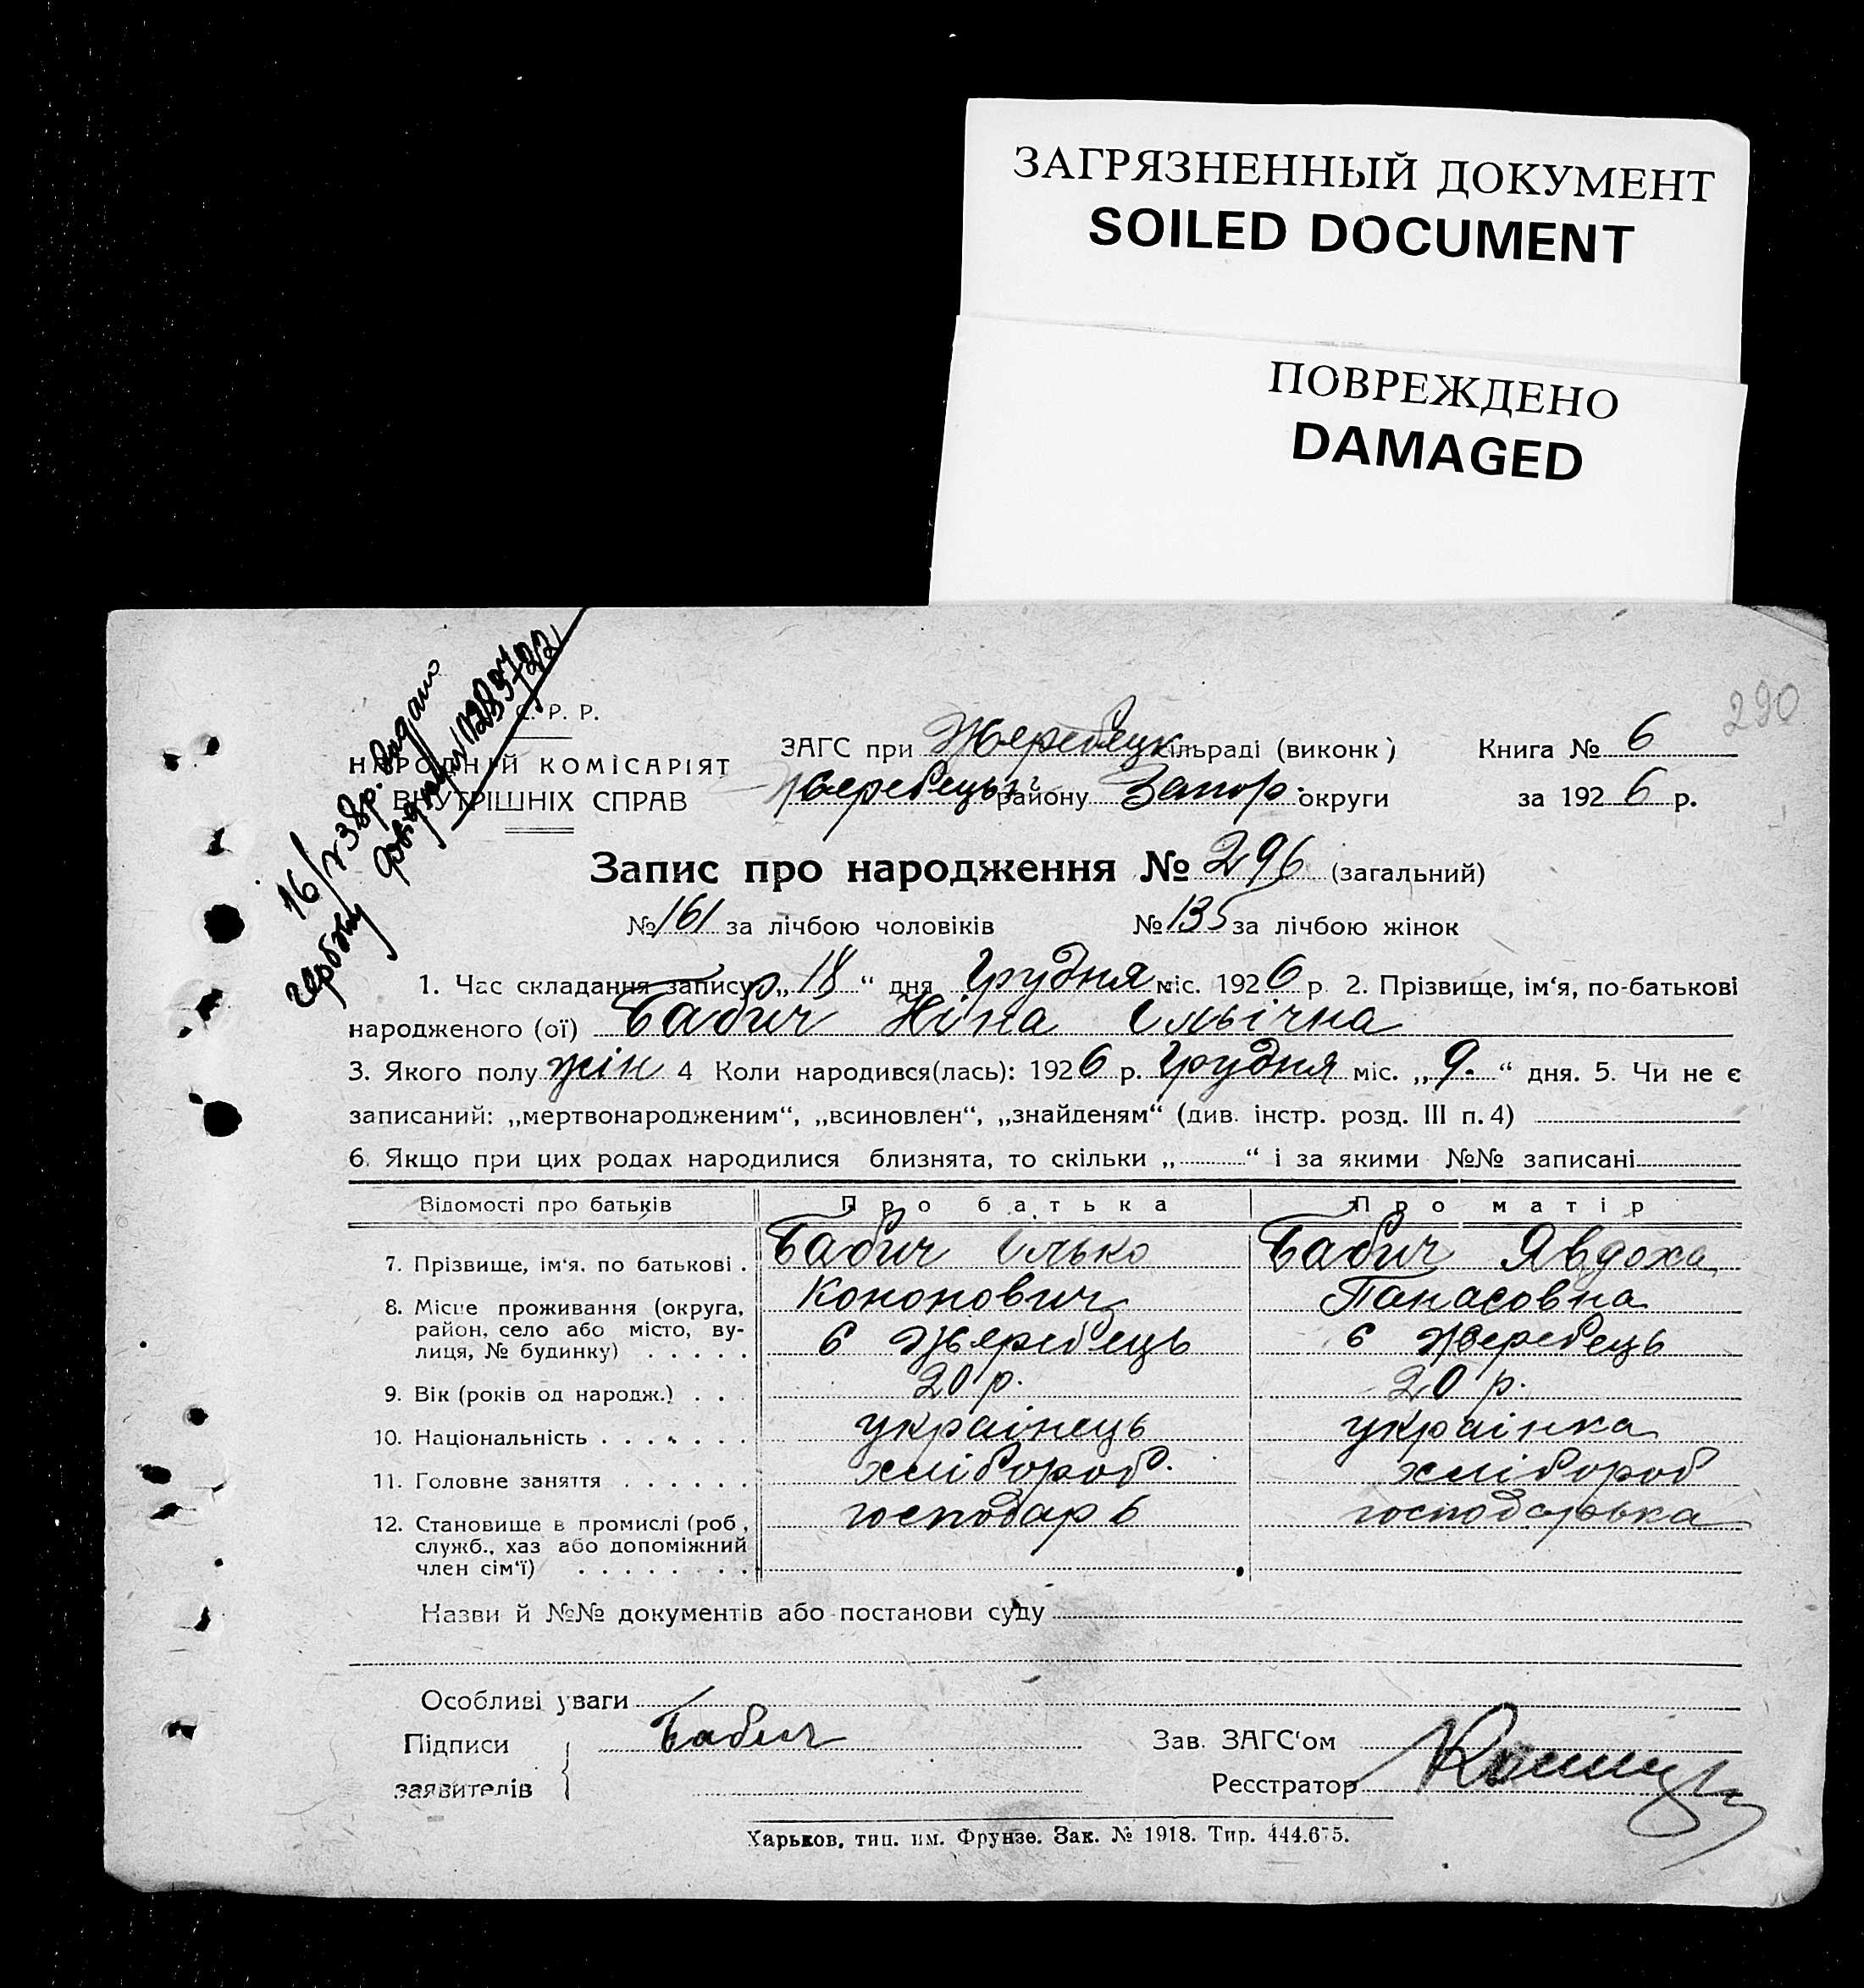 ЗАГРЯЗНЕННЫЙ ДОКУМЕНТ
SOILED DOCUMENT
ПОВРЕЖДЕНО
DAMAGED
290
С. Р. Р.
НАРОДНІЙ КОМІСАРІЯТ
ВНУТРІШНІХ СПРАВ
16/ 38р. видано
гербову
ЗАГС при Жеребецк сільраді (виконк) Книга № 6
Жеребецьк. району Запор. округи за 1926 р.
Запис про народження № 296 (загальний)
№ 161 за лічбою чоловіків № 135 за лічбою жінок
1. Час складання запису „18“ дня Грудня міс. 1926 р. 2. Прізвище, ім‘я, по-батькові
народженого (ої) Бабич Ніна Ільічна
3. Якого полу жін 4 Коли народився(лась): 1926 р. Грудня міс. „9.“ дня. 5. Чи не є
записаний: „мертвонародженим“, „всиновлен“, „знайденям“ (див. інстр. розд. III п. 4)
6. Якщо при цих родах народилися близнята, то скільки „ “ і за якими №№ записані
Відомості про батьків Про батька Про матір
7. Прізвище, ім‘я, по батькові . Бабич Ілько Бабич Явдоха
Кононович Панасовна
8. Місце проживання (округа,
район, село або місто, ву-
лиця, № будинку) . . . . . с Жеребець с Жеребець
9. Вік (років од народж.) . . . 20 р. 20 р.
10. Національність . . . . . . . українець українка
11. Головне заняття . . . . . . хлібороб. хлібороб
12. Становище в промислі (роб., господарь господарька
служб., хаз або допоміжний
член сім‘ї) . . . . . . . .
Назви й №№ документів або постанови суду
Особливі уваги
Підписи Бабич Зав. ЗАГС‘ом
заявителів Реєстратор
Харьков, тип. им. Фрунзе. Зак. № 1918. Тир. 444.675.